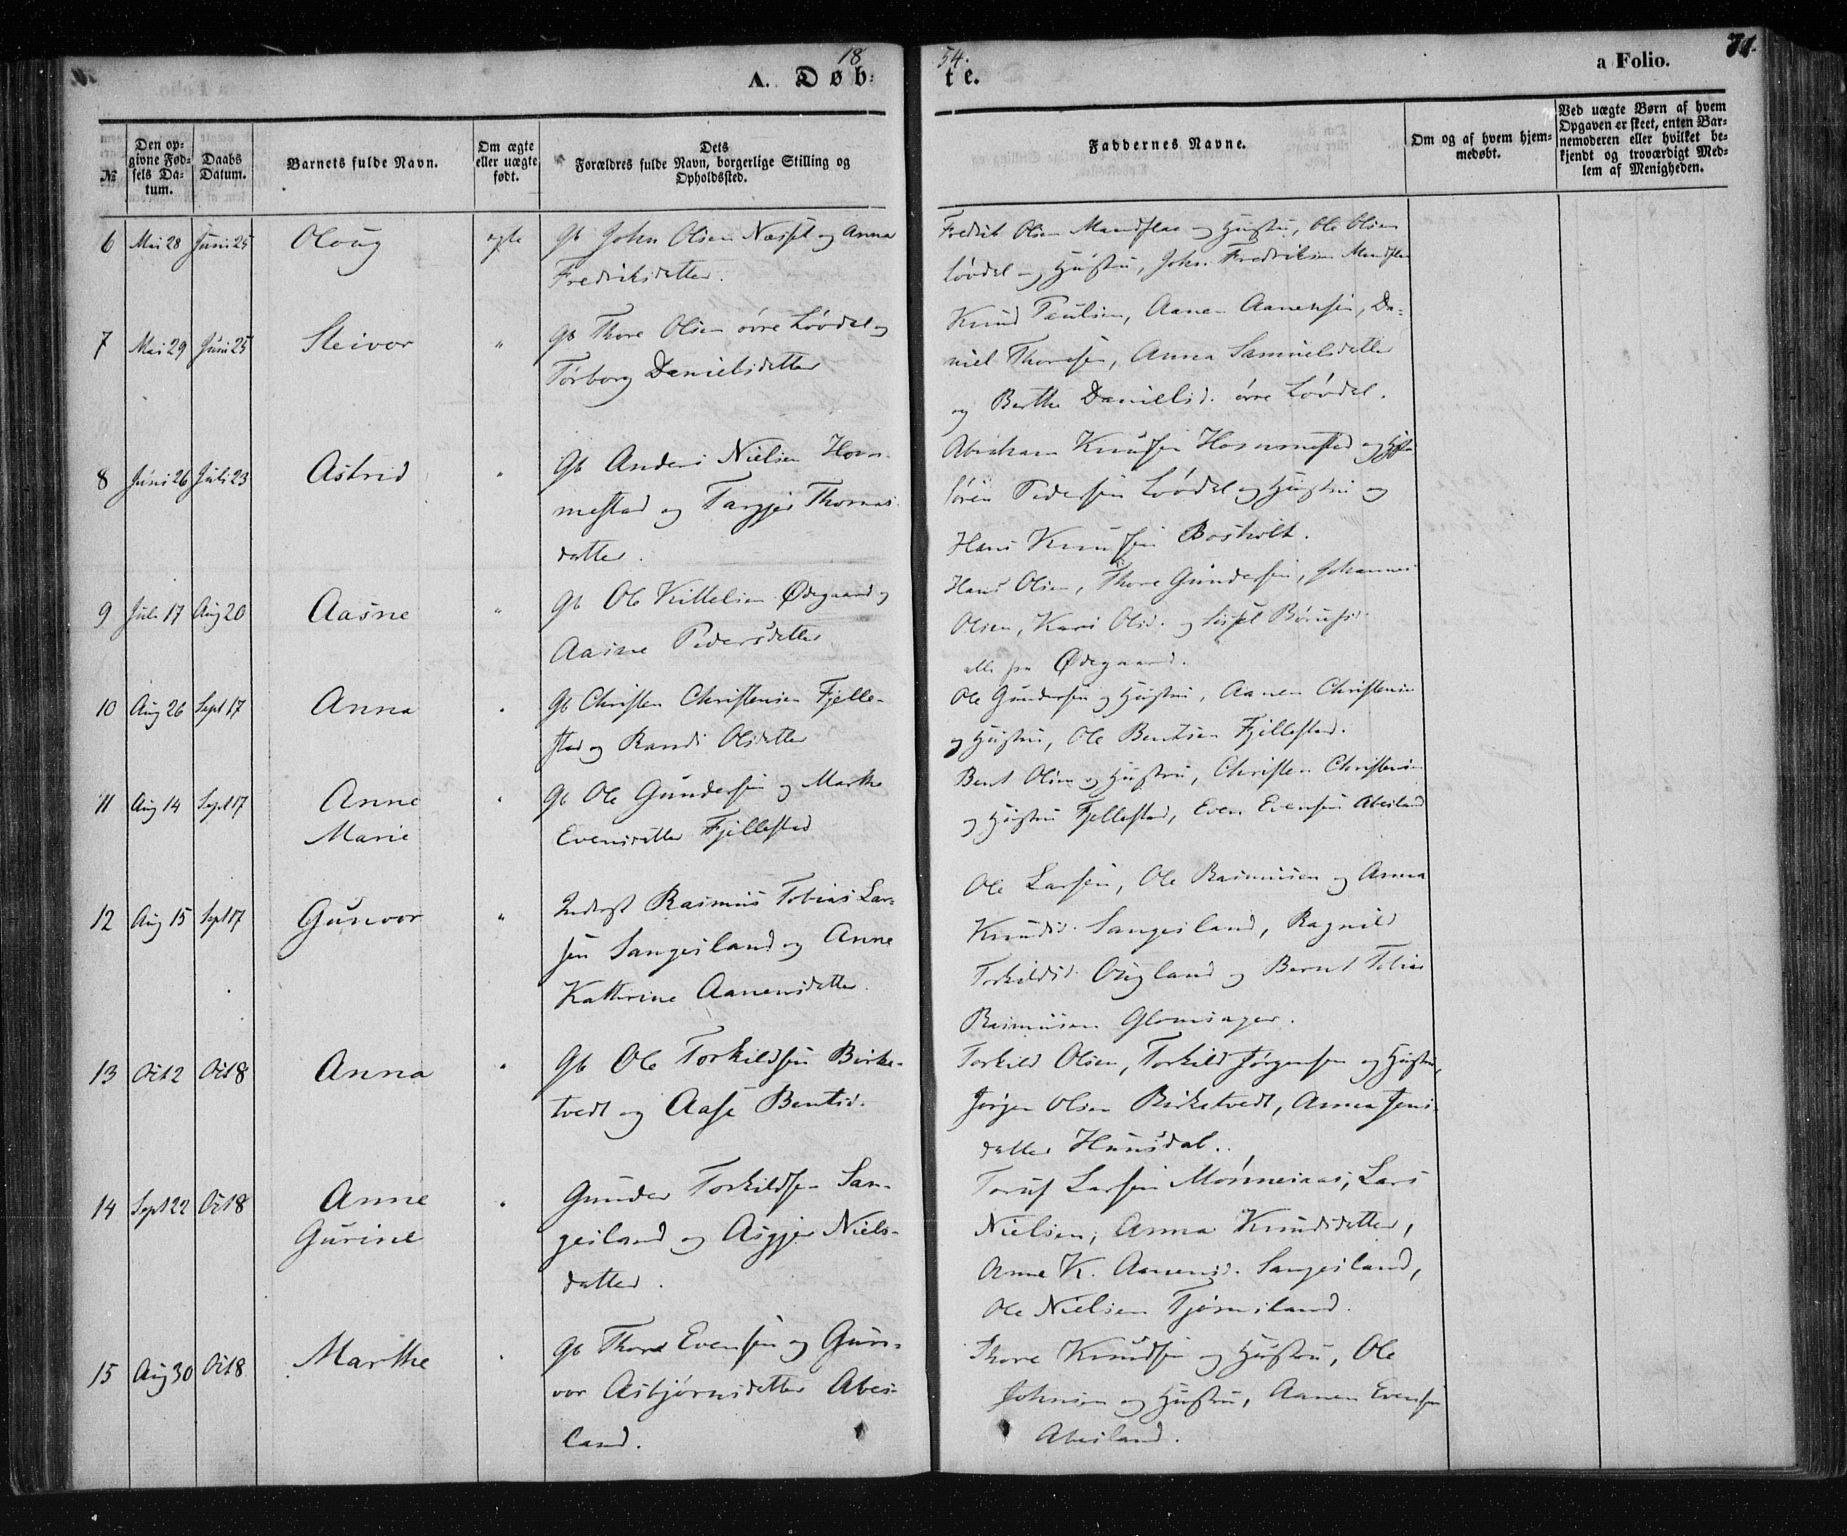 1854.
A. Døbte.
a Folio. 71.
№
Den opgivne Fødsels Datum.
Daabs Datum.
Barnets fulde Navn.
Om ægte eller uægte født.
Dets Forældres fulde Navn, borgerlige Stilling og Opholdssted.
Faddernes Navne.
Om og af hvem hjemmedøbt.
Ved uægte Børn af hvem Opgaven er skeet, enten Barnemoderen eller hvilket bekjendt og troværdigt Medlem af Menigheden.
6 Mai 28 Juni 25 Oloug ægte Gb John Olsen Næsset og Anna
Fredriksdatter.
Fredrik Olsen Mandflaa og Hustru, Ole Olsen
Løvdal og Hustru, John Fredriksen Mandflaa
7 Mai 29 Juni 25 Steivor " Gb Thore Olsen øvre Løvdal og
Torborg Danielsdatter
Knud Paulsen, Aanen Aanensen, Da-
niel Thoresen, Anna Samuelsdatter
og Berthe Danielsd. øvre Løvdal.
8 Juni 26 Juli 23 Astrid " Gb Anders Nielsen Horn-
mestad og Targjer Thomas-
datter.
Abraham Knudsen Hornmestad og Hustru
Søren Pedersen Løvdal og Hustru og
Hans Knudsen Bosholt.
9 Juli 17 Aug 20 Aasne " Gb Ole Kittelsen Ødegaard og
Aasne Pedersdatter
Hans Olsen, Thore Gundersen, Johannes
Olsen, Kari Olsd. og Sissel
alle fra Ødegaard.
10 Aug 26 Sept 17 Anna " Gb Christen Christensen Fjelle-
stad og Randi Olsdatter
Ole Gundersen og Hustru, Aanen Christensen
og Hustru, Ole Bentsen Fjellestad.
11 Aug 14 Sept 17 Anne
Marie
" Gb Ole Gundersen og Marthe
Evensdatter Fjellestad
Bent Olsen og Hustru, Christen Christensen
og Hustru Fjellestad, Even Evensen Abesland
12 Aug 15 Sept 17 Gunvor " Inderst Rasmus Tobias Lar-
sen Sangesland og Anne
Kathrine Aanensdatter.
Ole Larsen, Ole Rasmusen og Anna
Knudsd. Sangesland, Ragnild
Torkildsd. Ougland og Bernt Tobias
Rasmusen Glomsager.
13 Oct 2 Oct 8 Anna " Gb Ole Torkildsen Birke-
tvedt og Aase Bentsd.
Torkild Olsen, Torkild Jørgensen og Hustru,
Jørgen Olsen Birketvedt, Anna Jens-
datter Hunsdal.
14 Sept 22 Oct 8 Anne
Gurine
" Gunder Torkildsen San-
gesland og Asgjer Niels-
datter.
Larsen Mønnesaas, Lars
Nielsen, Anna Knudsdatter,
Anne K. Aanensd. Sangesland,
Ole Nielsen Tjomsland.
15 Aug 30 Oct 8 Marthe " Gb Thore Evensen og Gun-
vor Asbjørnsdatter Abes-
land.
Thore Knudsen og Hustru, Ole
Johnsen og Hustru, Aanen Evensen
Abesland.